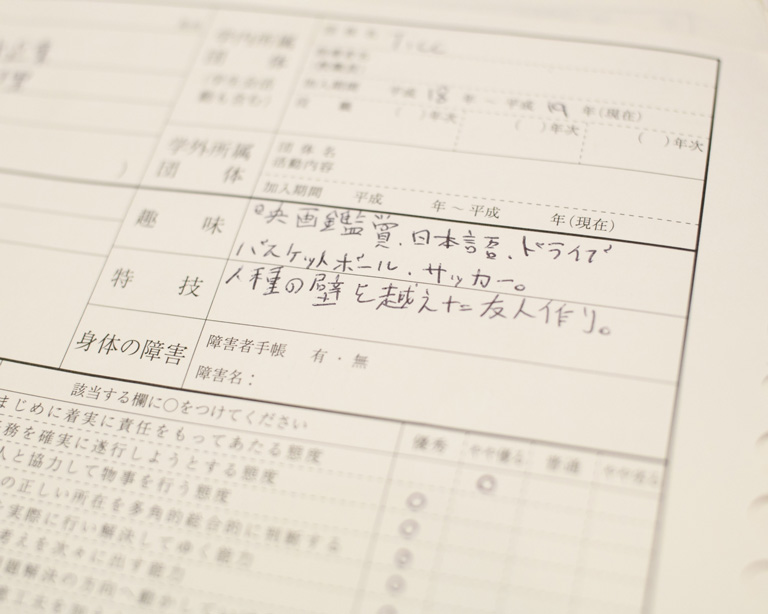 学内所属
団体
加入期間 平成 18 年 ~ 平成 19 年(現在)
( )年次 ( )年次 ( )年次
学外所属
団体
団体名
活動内容
加入期間 平成 年 ~ 平成 年(現在)
趣味
映画鑑賞、日本語、ドライブ
バスケットボール、サッカー。
特技
人種の壁を越えた友人作り。
身体の障害
障害者手帳 有・無
障害名:
該当する欄に○をつけてください
優秀 やや優る 普通
まじめに着実に責任をもってあたる態度
務を確実に遂行しようとする態度
人と協力して物事を行う態度
の正しい所在を多角的総合的に判断する
実際に行い解決してゆく能力
考えを次々に出す能力